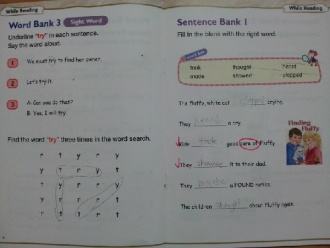 While Reading
Word Bank 3
Sight Word
Underline "try" in each sentence.
Say the word aloud.
1 We must try to find her owner.
2 Let's try it.
3 A: Can you do that?
B: Yes, I will try.
Find the word "try" three times in the word search.
r t y r y
t t r y
y r
r t r t
t y r y t
While Reading
Sentence Bank 1
Fill in the blank with the right word.
took thought heard
made showed stopped
The fluffy, white cat stopped crying.
They heard a cry.
took good care of Fluffy.
They showed it to their dad.
They made FOUND
The children thought about Fluffy again.
Finding
Fluffy